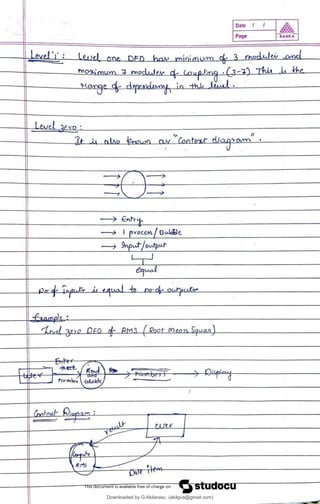 Date / /
Page
RANKA
Level '1' : Level one DFD has minimum of 3 modules and
maximum 7 modules of coupling. (3-7) This is the
range of dependancy in this level.
Level zero :
It is also known as "Context diagram".
→ Entity
→ 1 process / Bubble
→ Input/output
equal
no of Inputs is equal to no of outputs
Example :
Level zero DFD of RMS ( Root mean Square)
Enter
number
user
Read
and
calculate
numbers
→ Display
Context Diagram :
user
result
Compute
RMS
Data item
This document is available free of charge on
studocu
Downloaded by G.Akilarasu (akilgva@gmail.com)